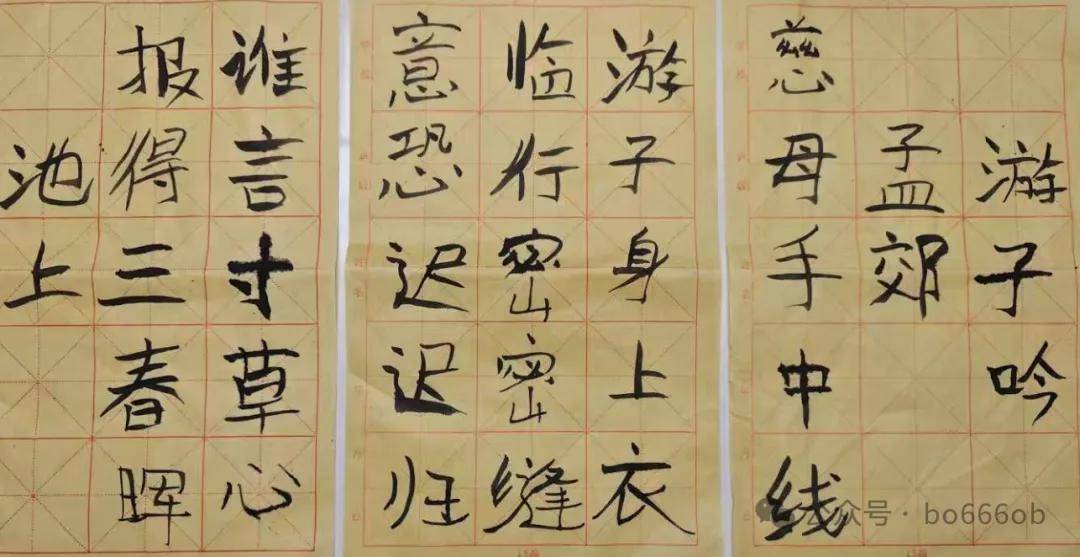 游子吟
孟郊
慈母手中线
游子身上衣
临行密密缝
意恐迟迟归
谁言寸草心
报得三春晖
池上
公众号 · bo666ob